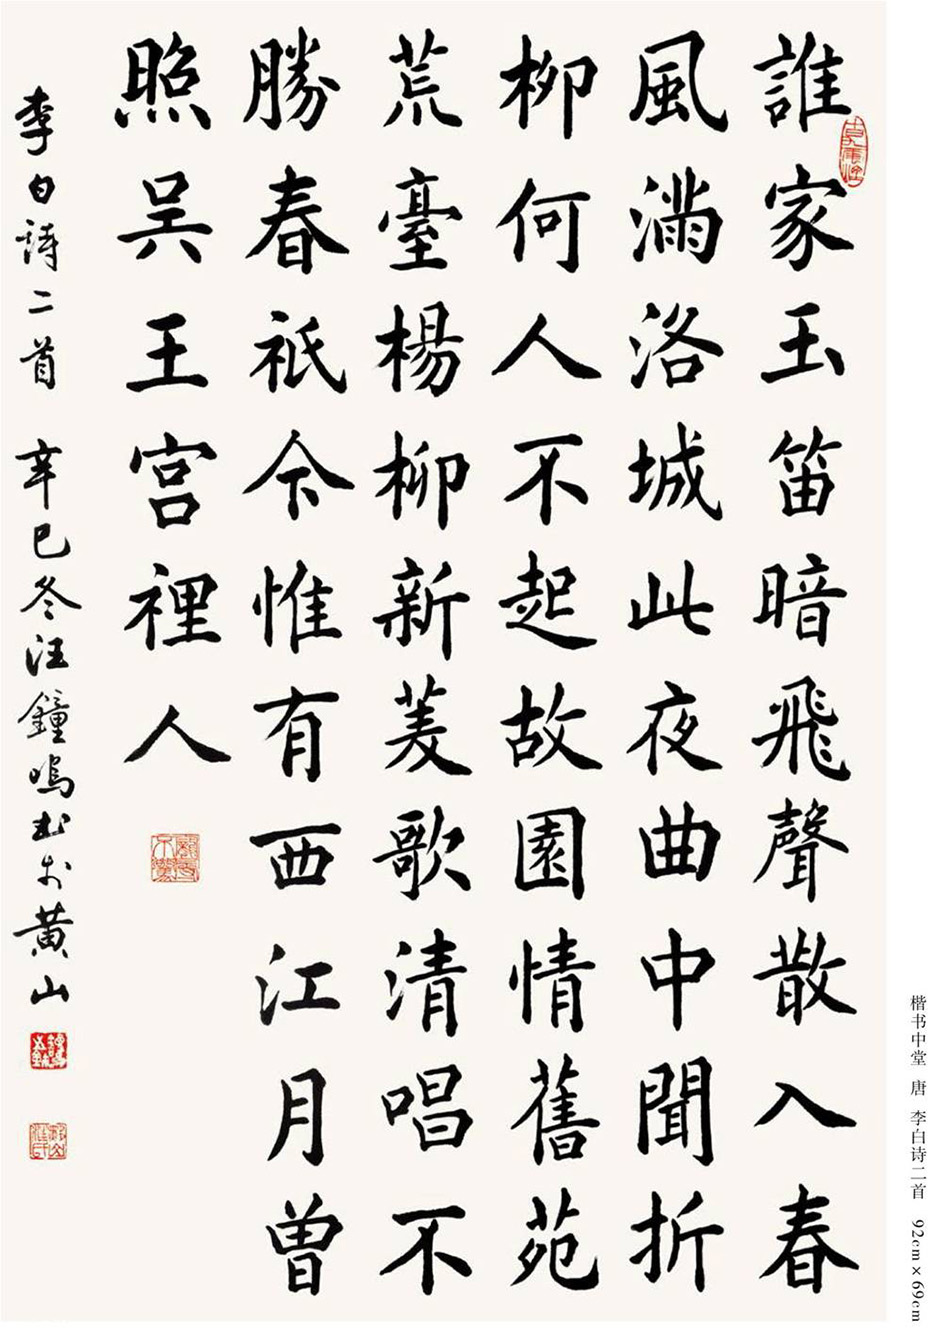 誰家玉笛暗飛聲散入春
風滿洛城此夜曲中聞折
柳何人不起故園情舊苑
荒臺楊柳新菱歌清唱不
勝春祇今惟有西江月曽
照吴王宫裡人
李白詩二首 辛巳冬汪鐘鳴书於黄山
楷书中堂 唐 李白诗二首 92cm×69cm